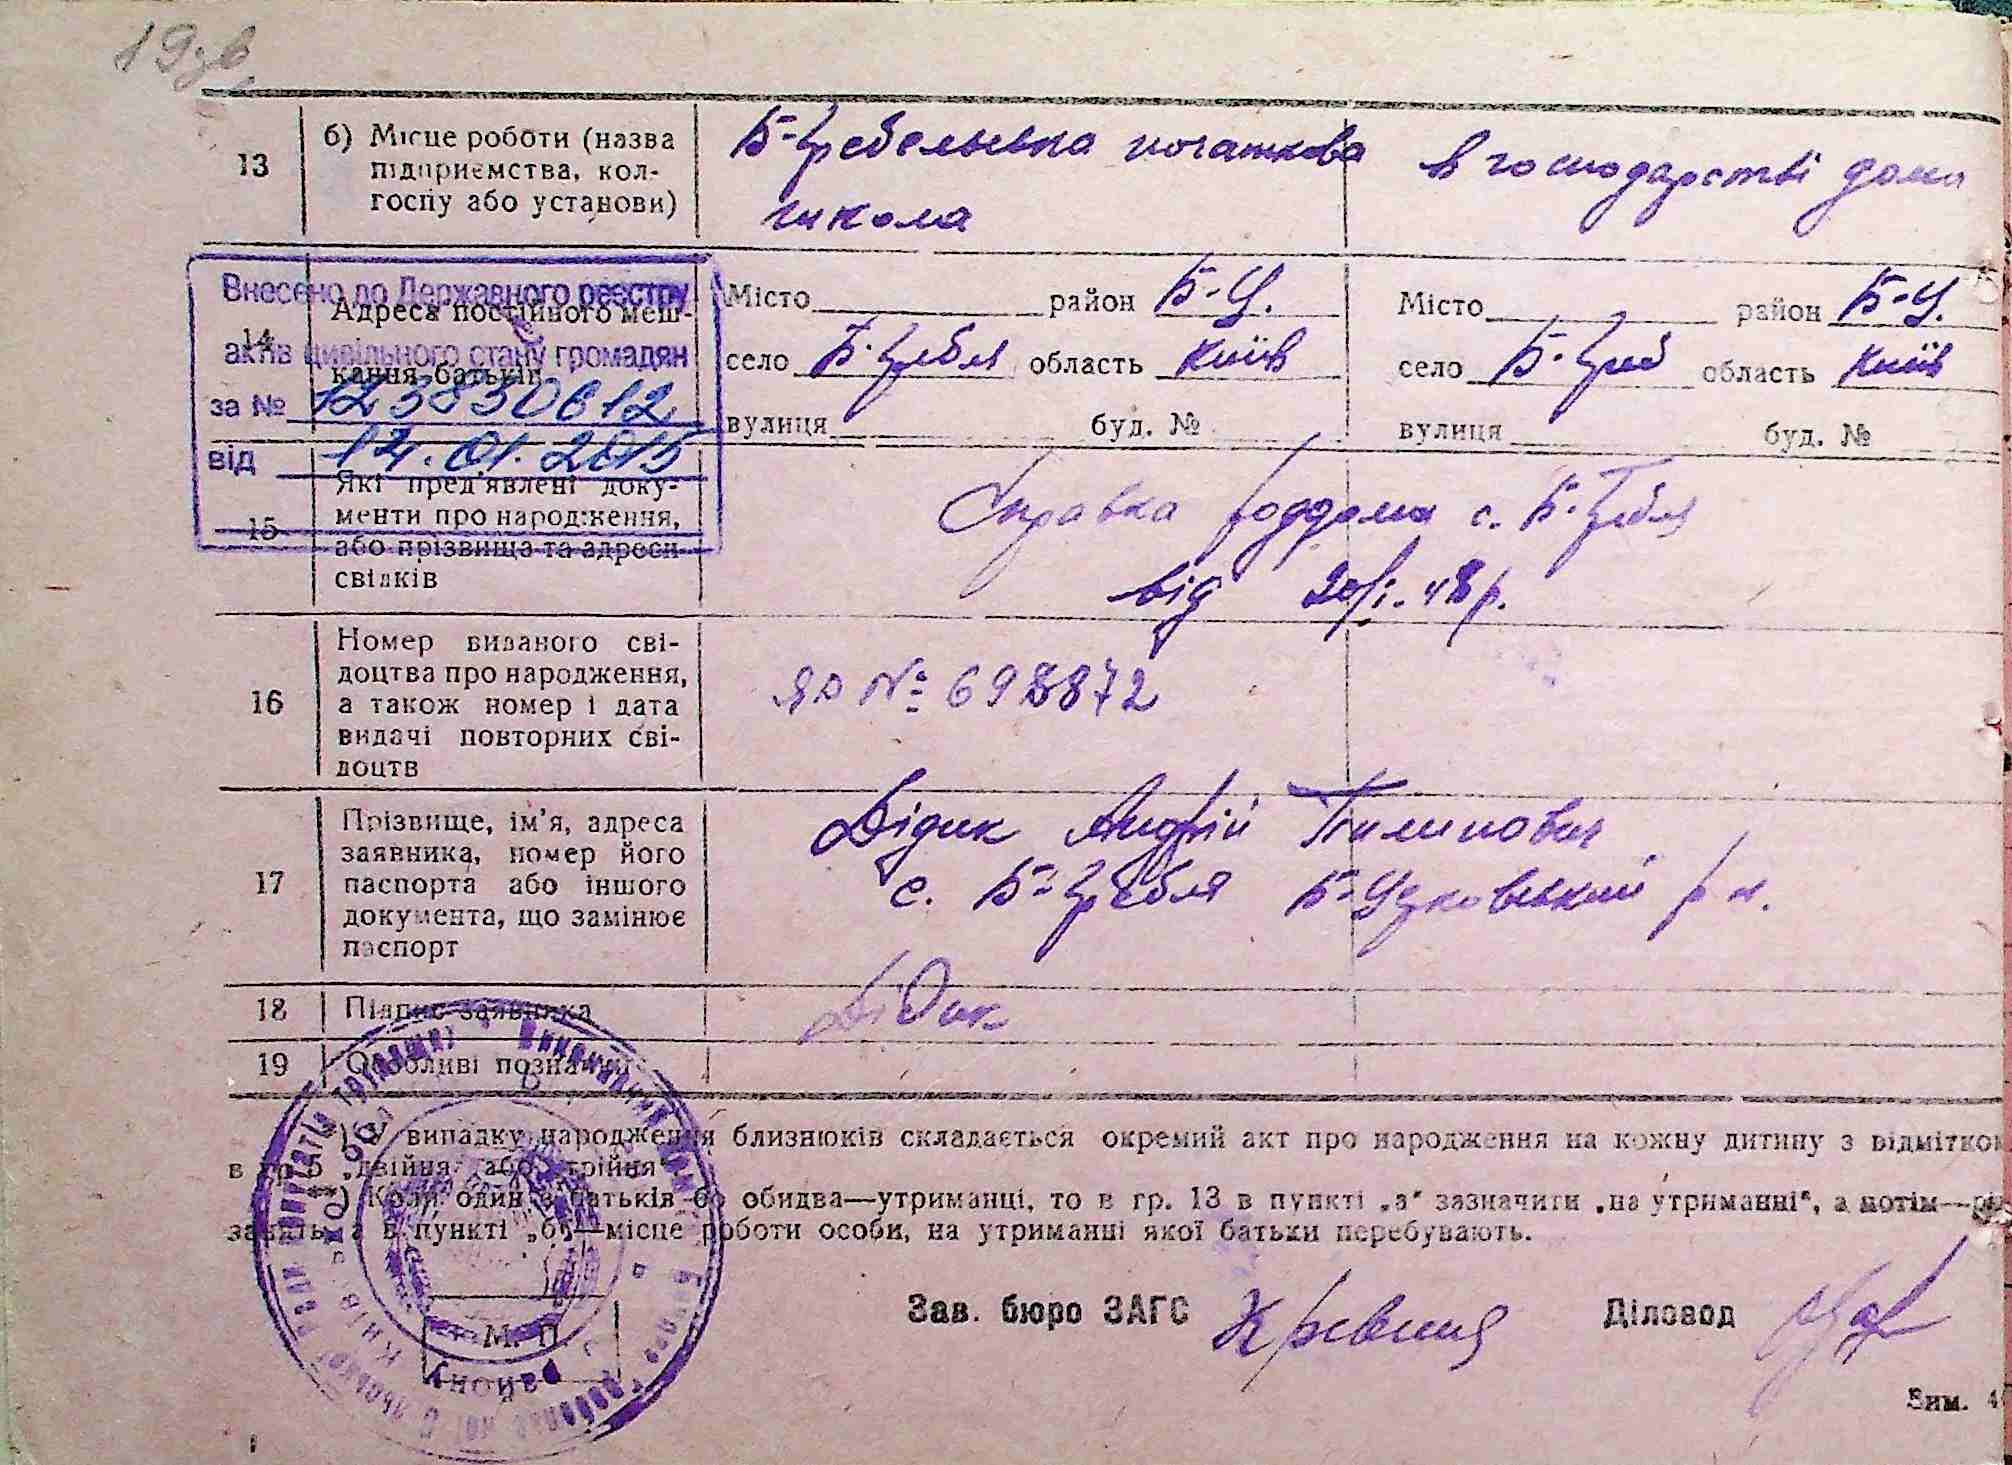 19зв.
13
б) Місце роботи (назва
підприємства, кол-
госпу або установи)
Б-Гребельська початкова
школа
в господарстві дома
Внесено до Державного реєстру
актів цивільного стану громадян
за № 123830612
від 14.01.2015
14
Адреса постійного меш-
кання батьків
Місто район Б-Ц.
село Б.Гребля область Київ
вулиця буд. №
Місто район Б-Ц.
село Б.Греб область Київ
вулиця буд. №
15
Які пред'явлені доку-
менти про народження,
або прізвища та адреси
свідків
Справка роддома с. Б.Гребля
від 20/I. 48 р.
16
Номер виданого сві-
доцтва про народження,
а також номер і дата
видачі повторних сві-
доцтв
ЯО № 698872
17
Прізвище, ім'я, адреса
заявника, номер його
паспорта або іншого
документа, що замінює
паспорт
Дідик Андрій Пилипович
с. Б-Гребля Б-Церковський р н.
18
Підпис заявника
Дідик
19
Особливі позначки
) У випадку народження близнюків складається окремий акт про народження на кожну дитину з відміткою
в гр. 5 „двійня" або „трійня"
) Коли один з батьків бо обидва—утриманці, то в гр. 13 в пункті „а" зазначити „на утриманні", а потім—рід
занять, а в пункті „б"—місце роботи особи, на утриманні якої батьки перебувають.
М. П.
району
Зав. бюро ЗАГС
Діловод
Зим. 4